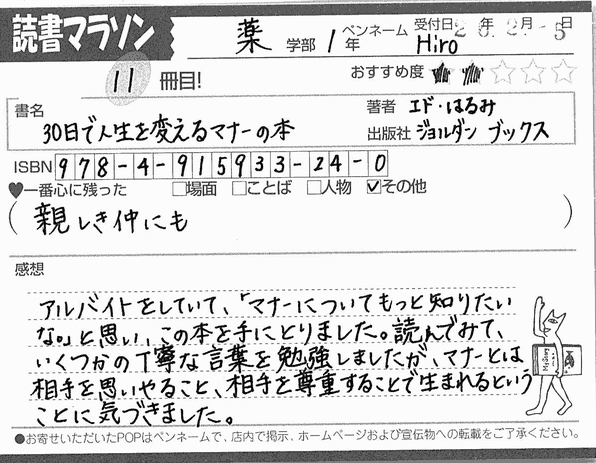 読書マラソン
薬 学部 1年
ペンネーム Hiro
受付日 年 2月 5日
11 冊目!
おすすめ度 ★★☆☆☆
書名 30日で人生を変えるマナーの本
著者 エド・はるみ
出版社 ジョルダン ブックス
ISBN 978-4-915933-24-0
♥一番心に残った □場面 □ことば □人物 ☑その他
(親しき仲にも)
感想
アルバイトをしていて、「マナーについてもっと知りたい
な。」と思い、この本を手にとりました。読んでみて、
いくつかの丁寧な言葉を勉強しましたが、マナーとは
相手を思いやること、相手を尊重することで生まれるという
ことに気づきました。
●お寄せいただいたPOPはペンネームで、店内で掲示、ホームページおよび宣伝物への転載をご了承ください。